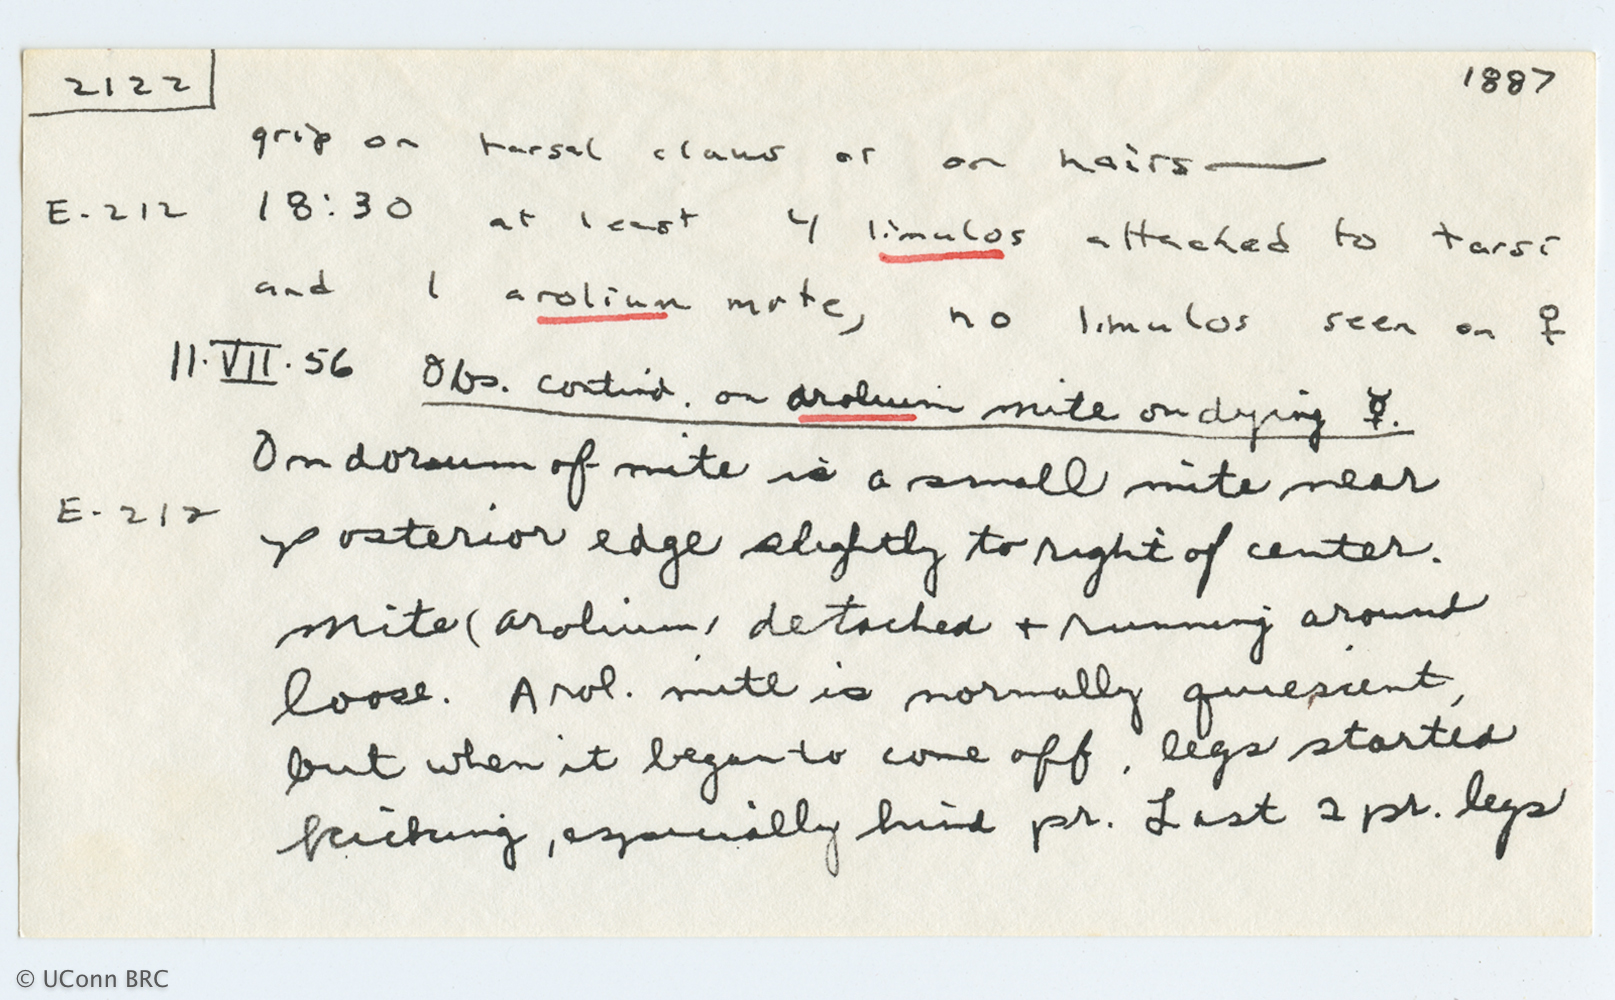 2122
1887
grip on tarsal claws or on hairs—
E-212 18:30 at least 4 limulos attached to tarsi
and 1 arolium mite, no limulos seen on ♀
11.VII.56 Obs. contind. on arolium mite on dying ☿.
On dorsum of mite is a small mite near
E-212 posterior edge slightly to right of center.
Mite (arolium) detached + running around
loose. Arol. mite is normally quiescent,
but when it began to come off, legs started
kicking, especially hind pr. Last 2 pr. legs
© UConn BRC